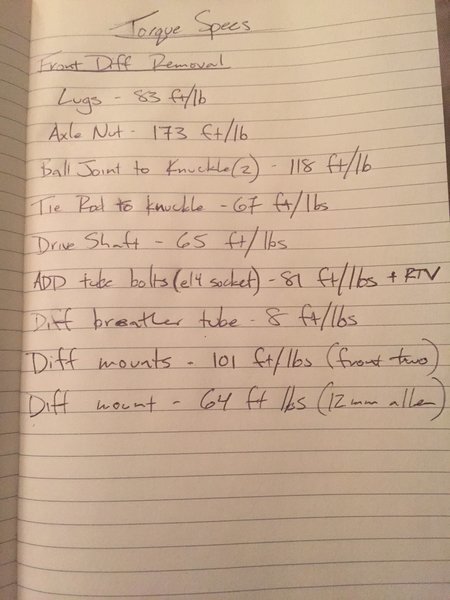 Torque Specs
Front Diff Removal
Lugs - 83 ft/lb
Axle Nut - 173 ft/lb
Ball Joint to Knuckle(2) - 118 ft/lb
Tie Rod to Knuckle - 67 ft/lbs
Drive Shaft - 65 ft/lbs
ADD tube bolts (e14 socket) - 81 ft/lbs + RTV
Diff breather tube - 8 ft/lbs
Diff mounts - 101 ft/lbs (front two)
Diff mount - 64 ft lbs (12mm allen)